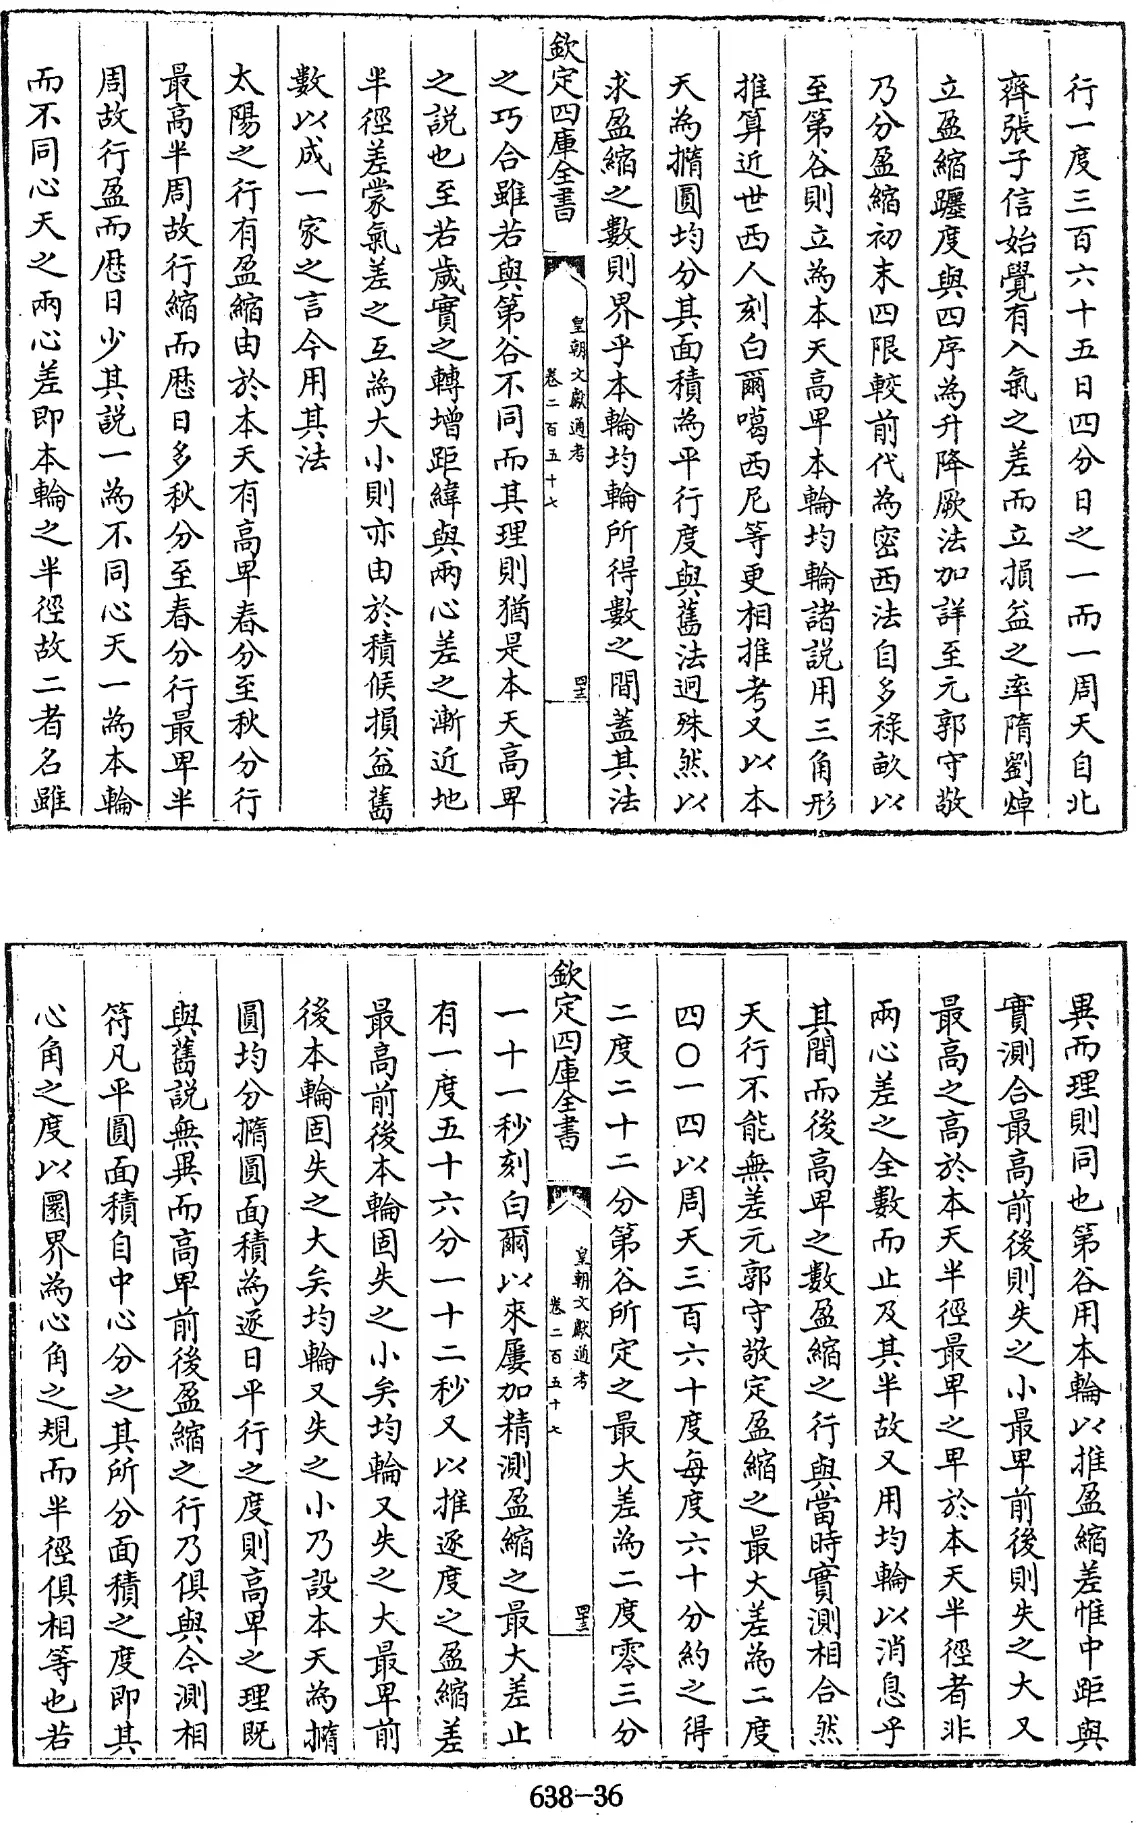 行一度三百六十五日四分日之一而一周天自北
齊張子信始覺有入氣之差而立損益之率隋劉焯
立盈縮躔度與四序為升降厥法加詳至元郭守敬
乃分盈縮初末四限較前代為密西法自多祿畝以
至第谷則立為本天高卑本輪均輪諸説用三角形
推算近世西人刻白爾噶西尼等更相推考又以本
天為橢圓均分其面積為平行度與舊法迥殊然以
求盈縮之數則界乎本輪均輪所得數之間蓋其法
欽定四庫全書
皇朝文獻通考
卷二百五十七
之巧合雖若與第谷不同而其理則猶是本天高卑
之説也至若歲實之轉增距緯與兩心差之漸近地
半徑差蒙氣差之互為大小則亦由於積候損益舊
數以成一家之言今用其法
太陽之行有盈縮由於本天有高卑春分至秋分行
最高半周故行縮而厯日多秋分至春分行最卑半
周故行盈而厯日少其説一為不同心天一為本輪
而不同心天之兩心差即本輪之半徑故二者名雖
異而理則同也第谷用本輪以推盈縮差惟中距與
實測合最高前後則失之小最卑前後則失之大又
最高之高於本天半徑最卑之卑於本天半徑者非
兩心差之全數而止及其半故又用均輪以消息乎
其間而後高卑之數盈縮之行與當時實測相合然
天行不能無差元郭守敬定盈縮之最大差為二度
四〇一四以周天三百六十度每度六十分約之得
二度二十二分第谷所定之最大差為二度零三分
欽定四庫全書
皇朝文獻通考
卷二百五十七
一十一秒刻白爾以來屢加精測盈縮之最大差止
有一度五十六分一十二秒又以推逐度之盈縮差
最高前後本輪固失之小矣均輪又失之大最卑前
後本輪固失之大矣均輪又失之小乃設本天為橢
圓均分橢圓面積為逐日平行之度則高卑之理既
與舊説無異而高卑前後盈縮之行乃俱與今測相
符凡平圓面積自中心分之其所分面積之度即其
心角之度以圜界為心角之規而半徑俱相等也若
638-36